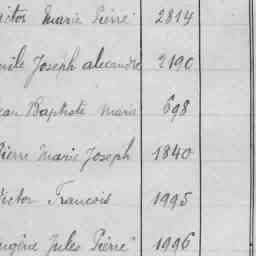 ictor Marie Pierre 2814
mile Joseph alexandre 2190
ean Baptiste Marie 698
Pierre Marie Joseph 1840
Victor Francois 1995
ugène Jules Pierre 1996